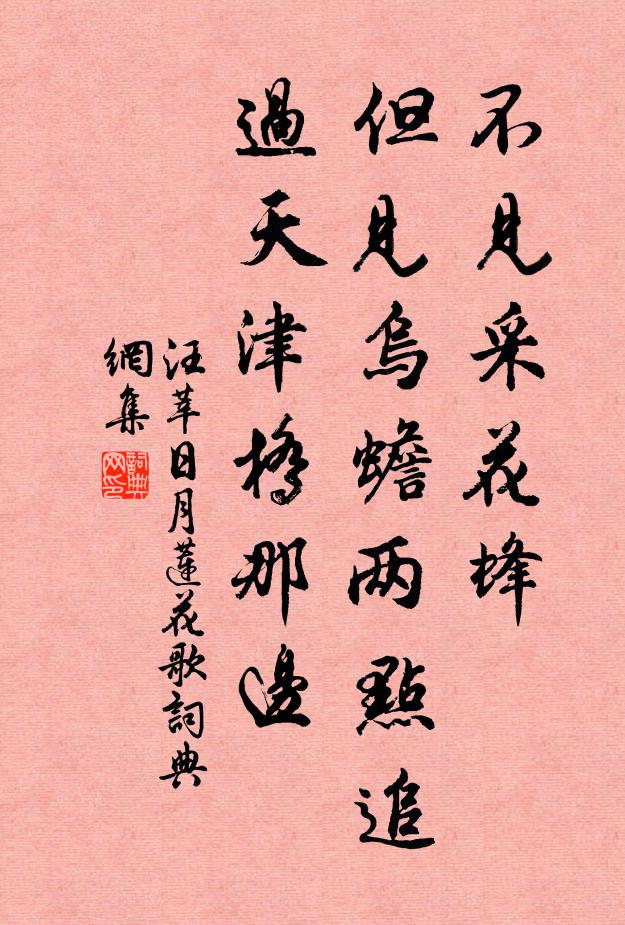 不見采花蜂
但見烏蟾两點追
過天津橋那邊
汪莘日月蓮花歌詞典
網集
詞典网印